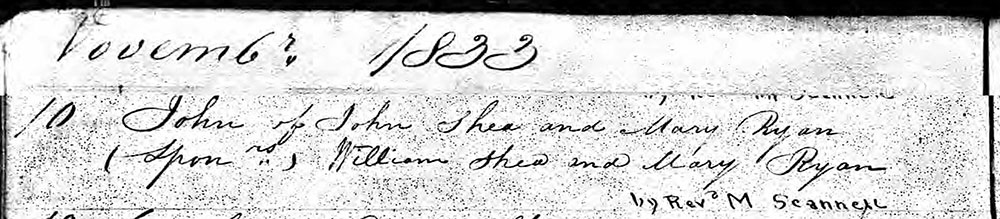 Novembr. 1833
by Rev M Scannell
10 John of John Shea and Mary Ryan
(Sponrs.) William Shea and Mary Ryan
by Revd M Scannell